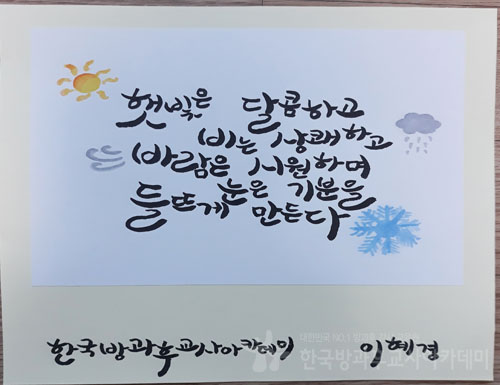 햇빛은 달콤하고
비는 상쾌하고
바람은 시원하며
눈은 기분을
들뜨게 만든다
한국방과후교사아카데미 이혜경
대한민국 NO.1
한국방과후교사아카데미